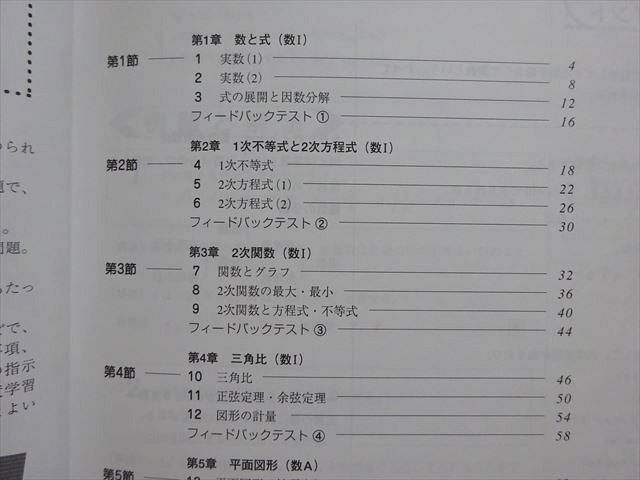 第1章 数と式（数Ⅰ）
第1節
1 実数(1) 4
2 実数(2) 8
3 式の展開と因数分解 12
フィードバックテスト ① 16
第2章 1次不等式と2次方程式（数Ⅰ）
第2節
4 1次不等式 18
5 2次方程式(1) 22
6 2次方程式(2) 26
フィードバックテスト ② 30
第3章 2次関数（数Ⅰ）
第3節
7 関数とグラフ 32
8 2次関数の最大・最小 36
9 2次関数と方程式・不等式 40
フィードバックテスト ③ 44
第4章 三角比（数Ⅰ）
第4節
10 三角比 46
11 正弦定理・余弦定理 50
12 図形の計量 54
フィードバックテスト ④ 58
第5章 平面図形（数A）
第5節
られ
題で、
。
問題。
たっ
で、
事項、
の指示
学習
よい